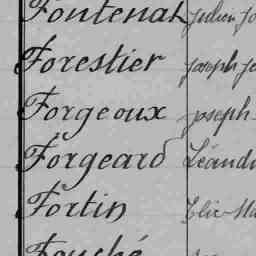 Fontenat Julien Jo
Forestier Joseph Je
Forgeoux Joseph
Forgeard Léandr
Fortin Elie-Ma
Fouché